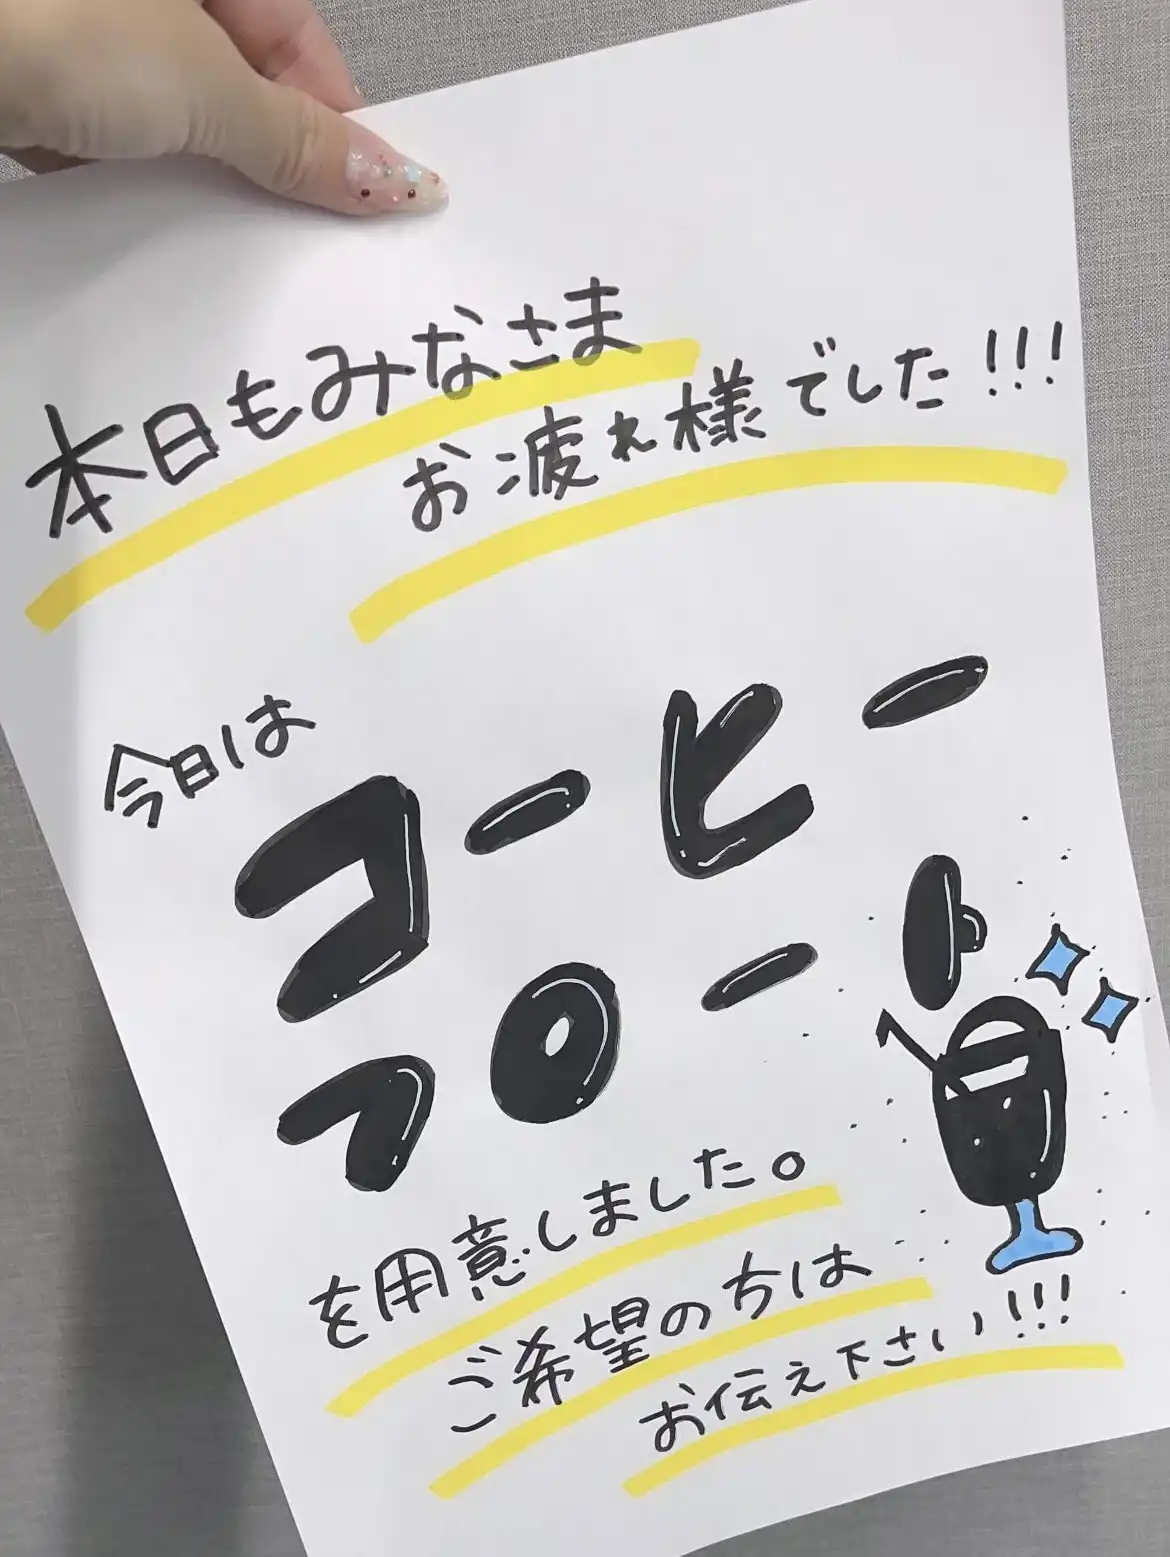 本日もみなさま
お疲れ様でした!!!
今日は
コーヒー
フロート
を用意しました。
ご希望の方は
お伝え下さい!!!